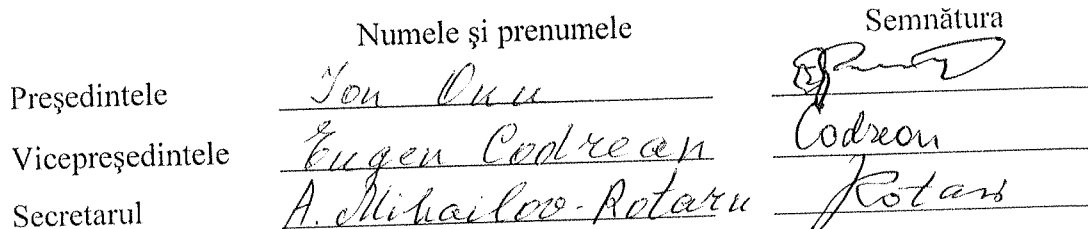 Numele şi prenumele Semnătura
Preşedintele Ion Onu
Vicepreşedintele Eugen Codrean Codrean
Secretarul A. Mihailov-Rotaru Rotaru